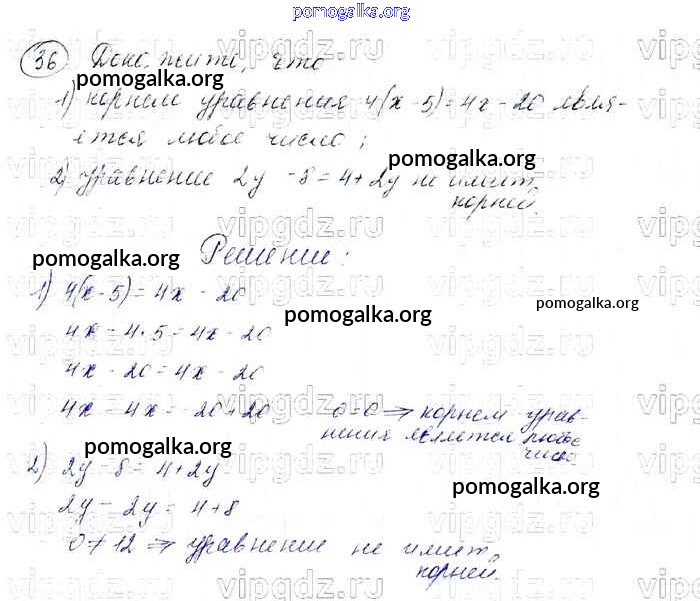 pomogalka.org
36 Докажите, что
pomogalka.org
1) корнем уравнения 4(x-5)=4x-20 явля-
ется любое число;
pomogalka.org
2) уравнение 2y-8=4+2y не имеет
корней.
Решение:
pomogalka.org
1) 4(x-5)=4x-20
pomogalka.org
pomogalka.org
4x-4·5=4x-20
4x-20=4x-20
4x-4x=-20+20 0=0 ⇒ корнем урав-
нения является любое
число
pomogalka.org
2) 2y-8=4+2y
pomogalka.org
2y-2y=4+8
0≠12 ⇒ уравнение не имеет
корней.